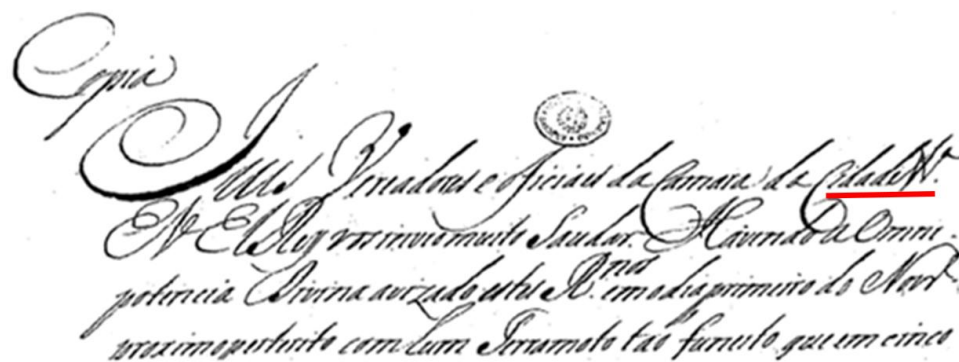 Copia
Juis Vereadores e oficiais da Camara da Cidade N.
EU El Rey vos invio muito Saudar. Havendo a Omni-
potencia Divina avizado estes R.nos em o dia primeiro de Novr.
proximo preterito com hum Terramoto tão funesto que em cinco